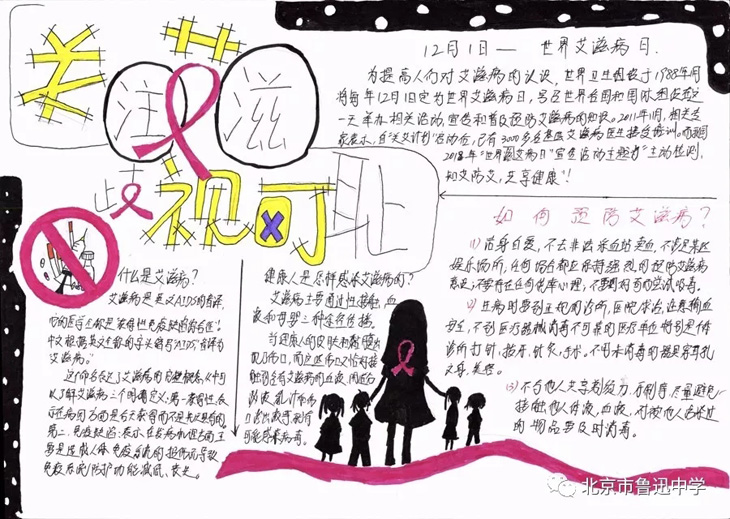 关艾
注滋
歧视可耻
12月1日— 世界艾滋病日.
为提高人们对艾滋病的认识,世界卫生组织于1988年
将每年12月1日定为世界艾滋病日,号召世界各国和国际组织在这
一天举办相关活动,宣传和普及预防艾滋病的知识。2011年1月,相关专
家表示,自"关艾计划"启动后,已有3000多名基层艾滋病医生接受培训。
2018年"世界艾滋病日"宣传活动主题有"主动检测,
知艾防艾,共享健康"!
如何预防艾滋病?
(1)洁身自爱,不去非法采血站卖血,不涉足
娱乐场所,任何场合都应保持强烈的预防艾滋病
意识;不要存在任何侥幸心理,不要因好奇而尝试吸毒。
(2)生病时要到正规的诊所,医院求治,注意输血
安全,不到医疗器械消毒不可靠的医疗单位特别是个体
诊所打针,拔牙,针灸,手术。不用未消毒的器具穿耳孔
文身,美容。
(3)不与他人共享剃须刀,牙刷等,尽量避免
接触他人体液,血液,对被他人污染过
的物品要及时消毒。
什么是艾滋病?
艾滋病是英文AIDS的音译,
它的医学全称是"获得性免疫缺陷综合征"。
中文根据英文全称的字头缩写"AIDS"音译为
艾滋病。
这个命名表达了艾滋病的完整概念,从中可
以了解艾滋病三个明确定义:第一获得性:表
示在病因方面是后天获得而不是先天具有的
第二,免疫缺陷:表示在发病机理方面主
要是造成人体免疫系统的损伤而导致
免疫系统防护功能减低、丧失。
健康人是怎样感染艾滋病的?
艾滋病主要通过性接触,血
液和母婴三种途径传播。
当健康人的皮肤和黏膜出
现了伤口,而这些伤口恰好接
触到含有艾滋病的血液,
北京市鲁迅中学